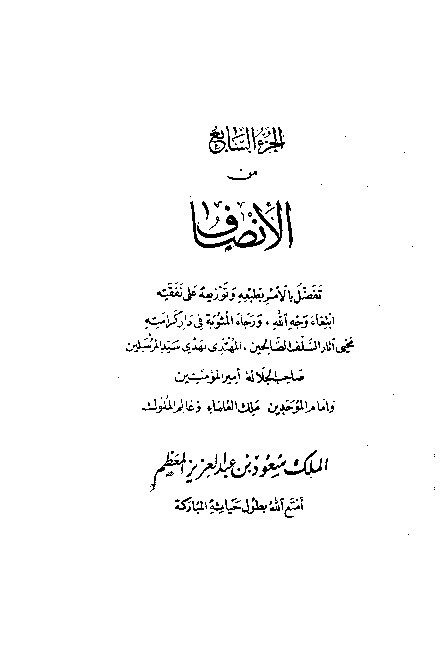 الجزء السابع
من
الإنصاف
تفضل بالأمر بطبعه وتوزيعه على نفقته
ابتغاء وجه الله، ورجاء المثوبة في دار كرامته
محيي آثار السلف الصالحين، المهتدي بهدي سيد المرسلين
صاحب الجلالة أمير المؤمنين
وإمام الموحدين ملك العلماء وعالم الملوك
الملك سعود بن عبد العزيز المعظم
أمتع الله بطول حياته المباركة